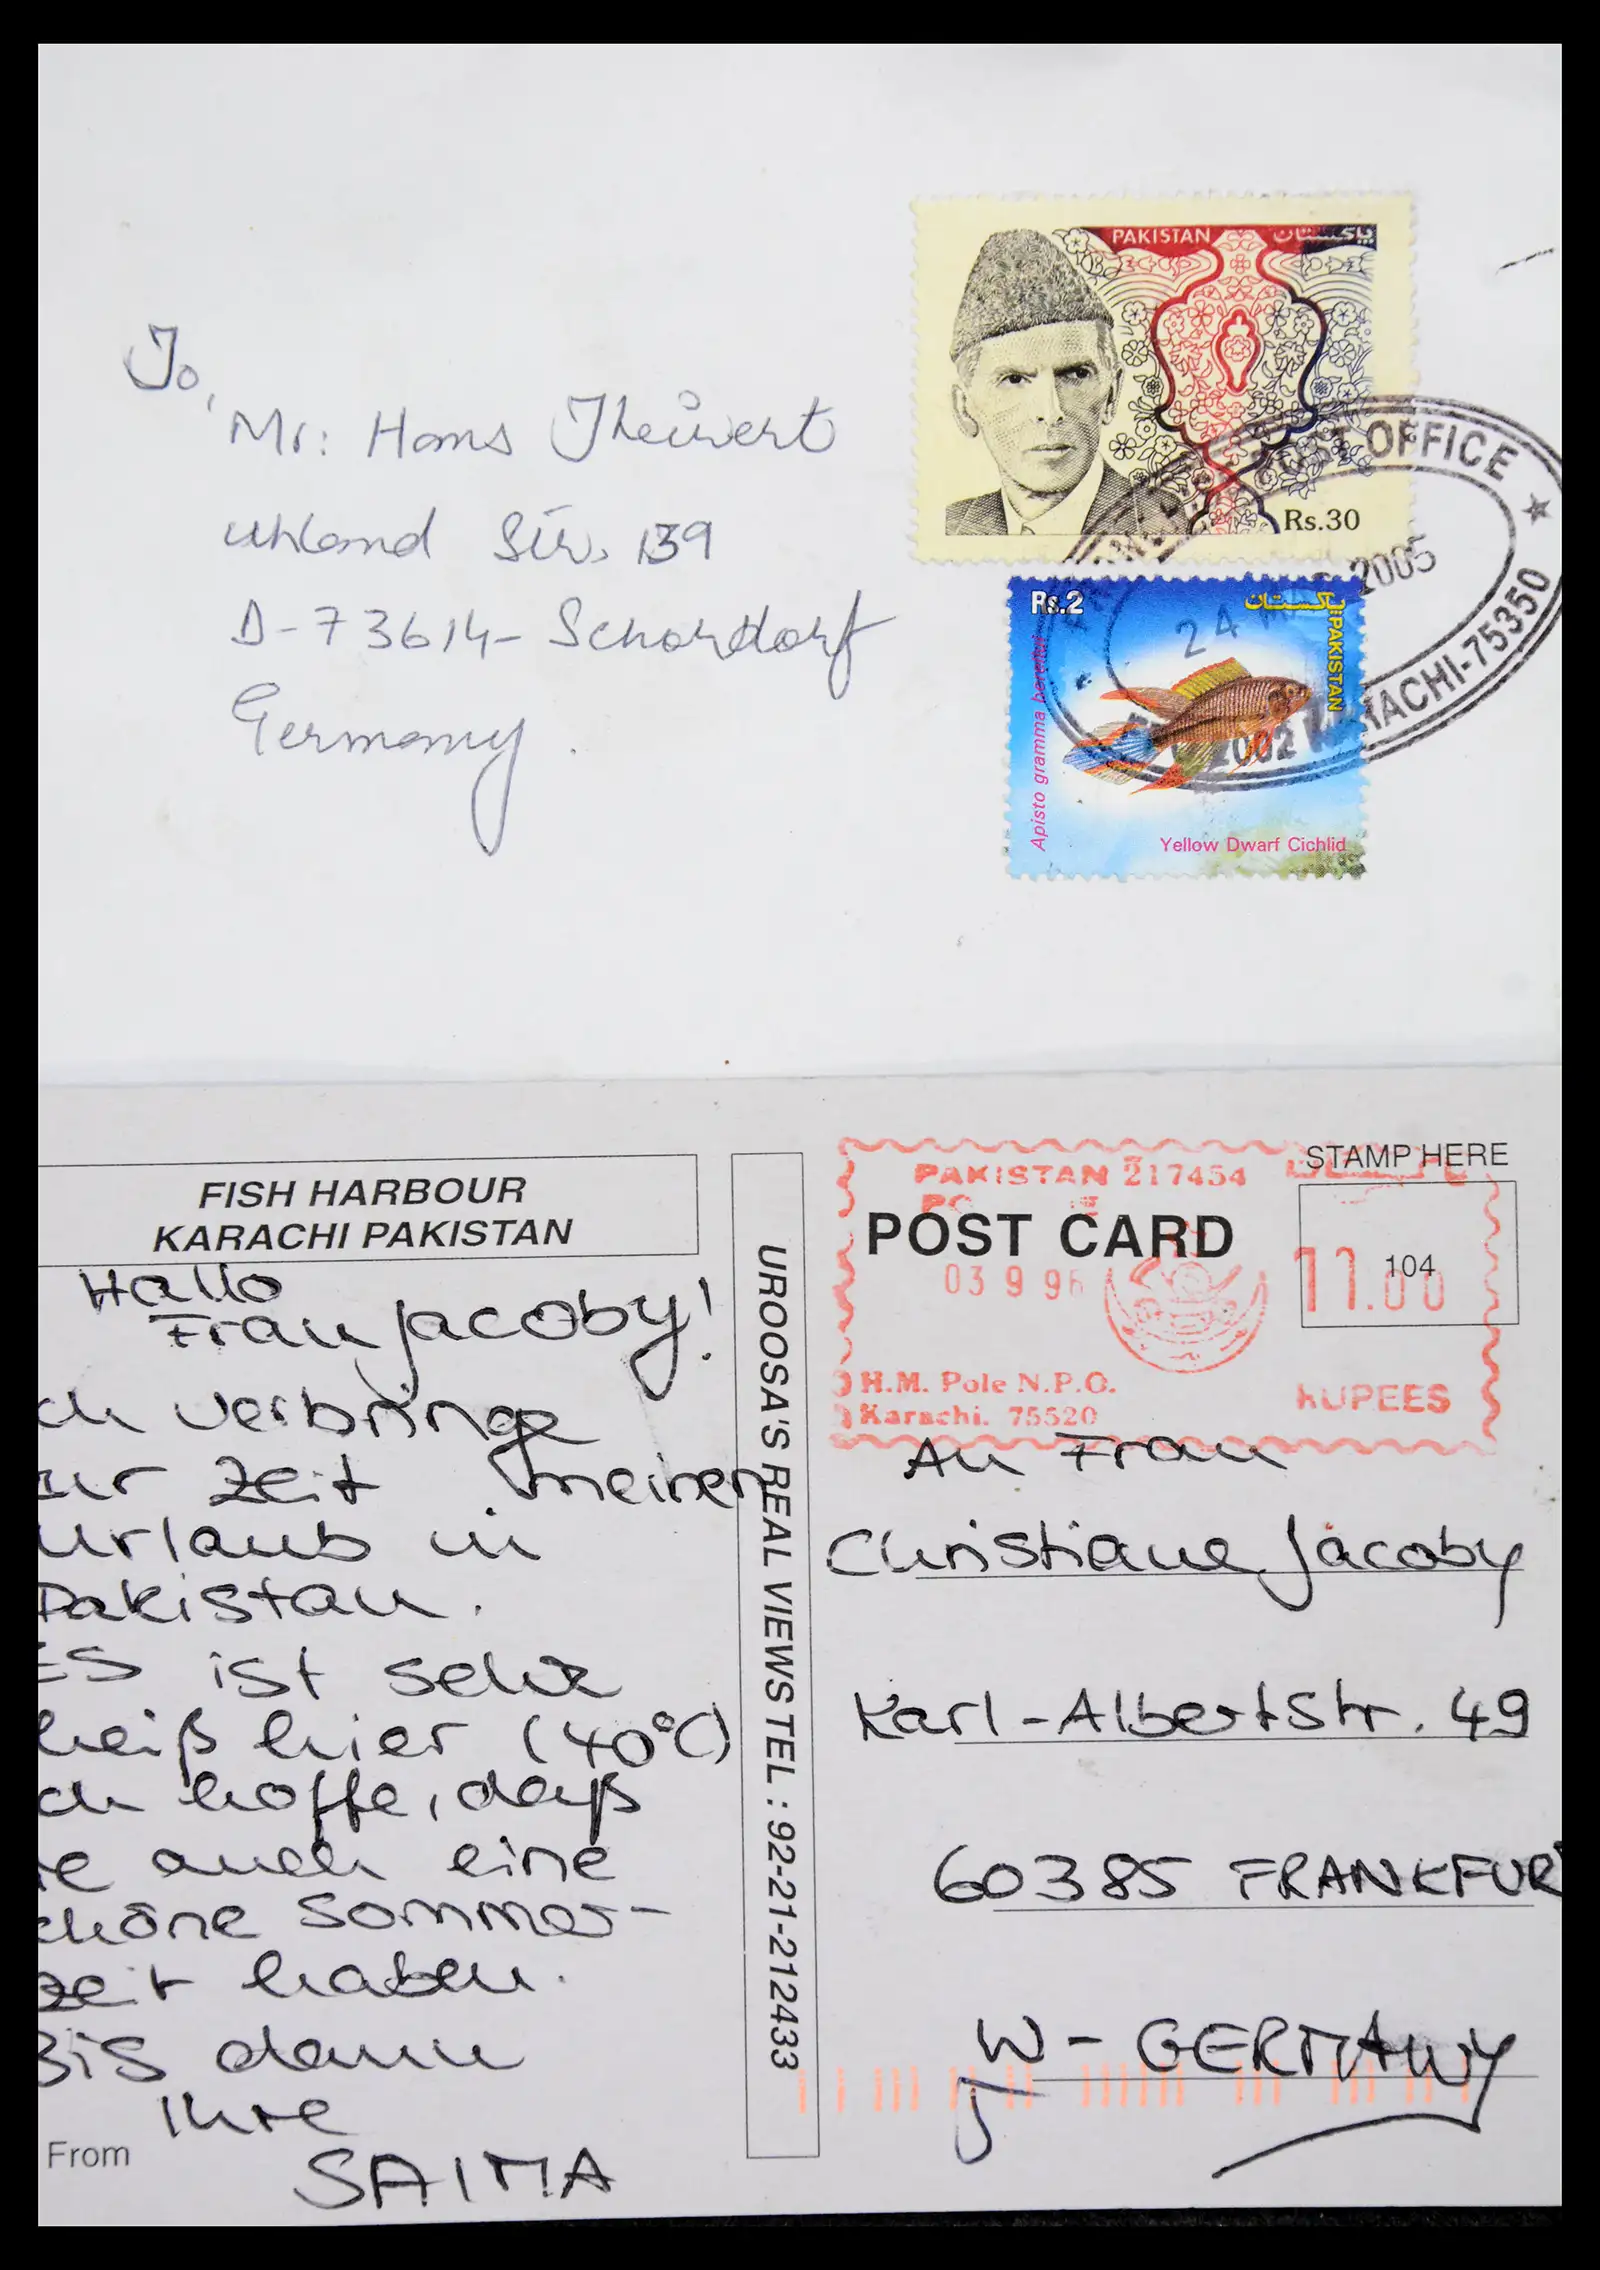 To,
Mr: Hans Theuvert
Uhland Str. 139
D-73614-Schorndorf
Germany.
PAKISTAN پاکستان
Rs.30
Rs.2 پاکستان
PAKISTAN
Apisto gramma
Yellow Dwarf Cichlid
POST OFFICE
24 2005
2002 KARACHI-75350
FISH HARBOUR
KARACHI PAKISTAN
Hallo
Frau Jacoby!
ch verbringe
ur Zeit meinen
Urlaub in
Pakistan.
ES ist sehr
heiß hier (40°C)
ch hoffe, daß
ie auch eine
chöne Sommer-
zeit haben.
Bis dann
Ihre
SAIMA
From
UROOSA'S REAL VIEWS TEL : 92-21-212433
PAKISTAN 217454
STAMP HERE
POST CARD
104
03 9 96
11.00
H.M. Pole N.P.O.
Karachi. 75520
RUPEES
An Frau
Christiane Jacoby
Karl-Albertstr. 49
60385 FRANKFURT
W-GERMANY